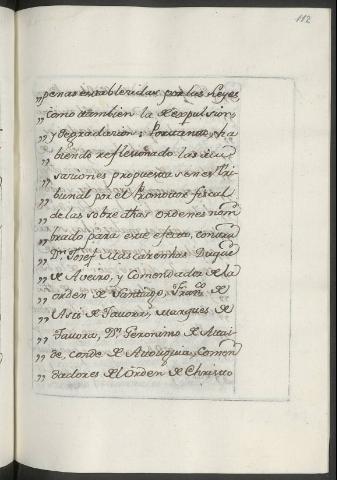 112
„penas establecidas por las Leyes,
„como tambien la de expulsion,
„y degradacion: Portanto, ha
„biendo reflesionado las acu
„saciones propuestas en este Tri
„bunal por el Promotor fiscal
„de las sobre dhas ordenes nom
„brado para este efecto, contra
„Dn. Josef Mascarenhas Duque
„de Aveiro, y Comendador de la
„orden de Santiago, Franco. de
„Asis de Tavora, Marques de
„Tavora, Dn. Geronimo de Attai
„de, conde de Atouguia, Comen
„dadores del Orden de Christo